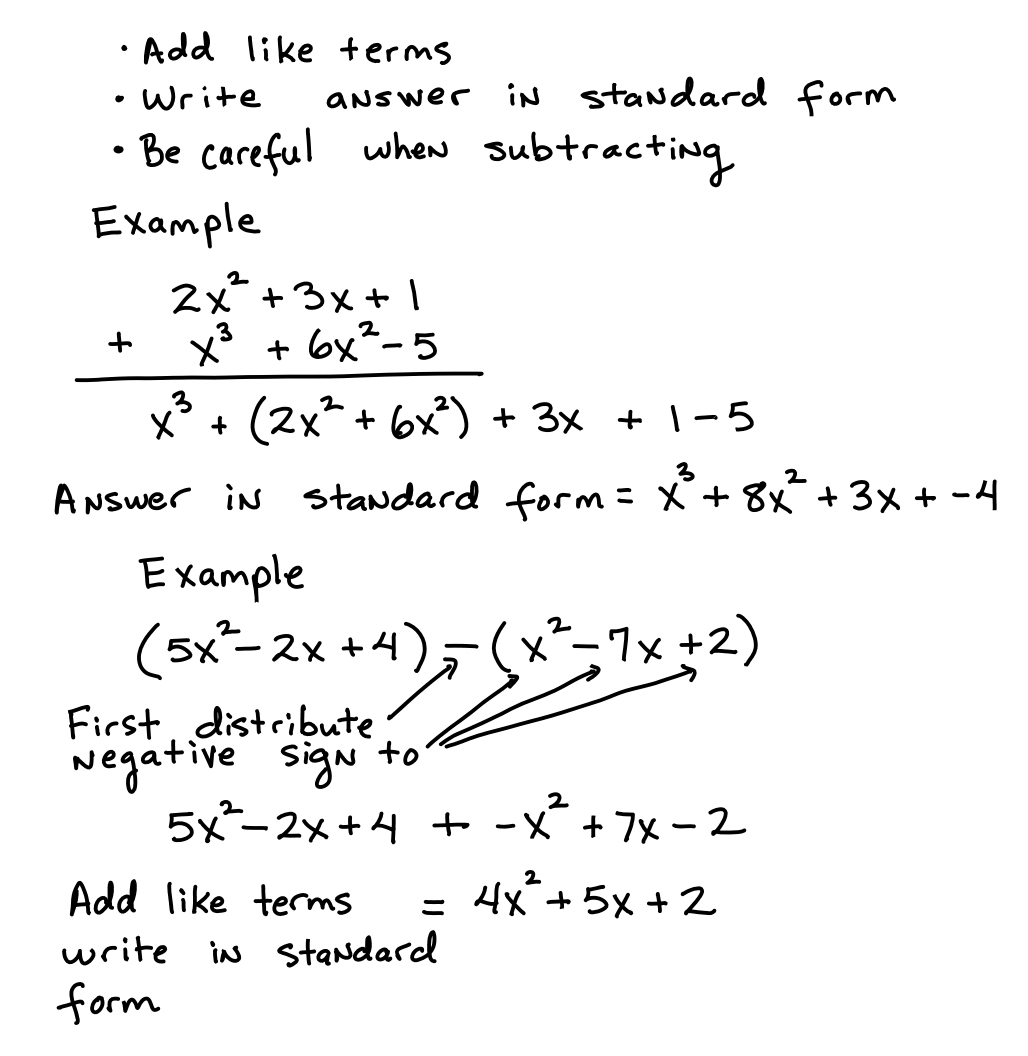 · Add like terms
· Write answer in standard form
· Be careful when subtracting
Example
2x² + 3x + 1
+ x³ + 6x² - 5
x³ + (2x² + 6x²) + 3x + 1 - 5
Answer in standard form = x³ + 8x² + 3x + -4
Example
(5x² - 2x + 4) - (x² - 7x + 2)
First distribute
negative sign to
5x² - 2x + 4 + -x² + 7x - 2
Add like terms = 4x² + 5x + 2
write in standard
form